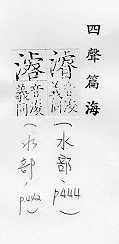 四聲篇海
音浚義同(水部、p444)
音浚義同(水部、p442)